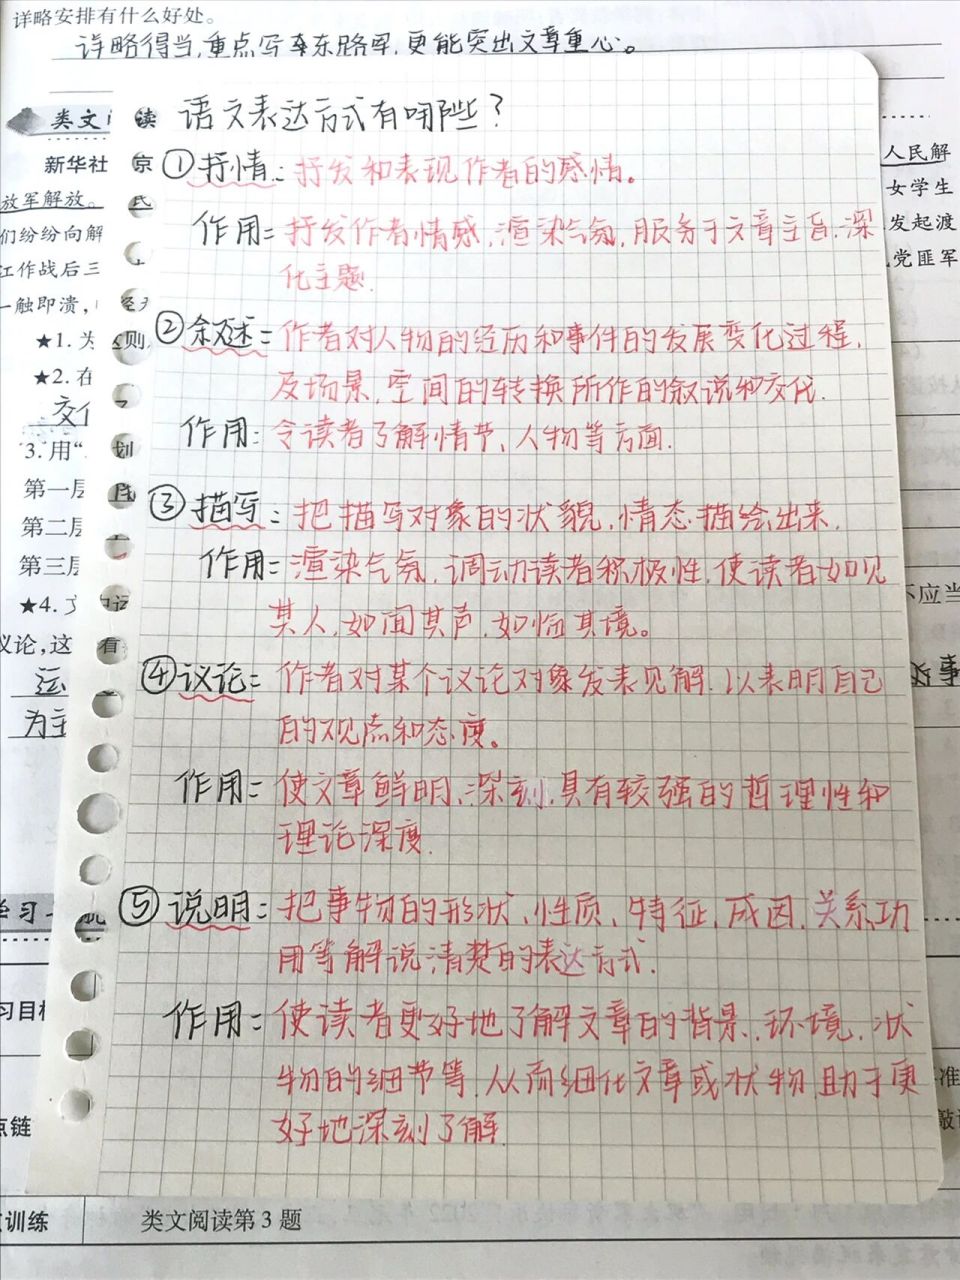 详略安排有什么好处。
详略得当,重点写车东路军,更能突出文章重心。
类文
读
语文表达方式有哪些?
新华社
京
①抒情:抒发和表现作者的感情。
人民解
放军解放。
民
女学生
作用:抒发作者情感,渲染气氛,服务于文章主旨,深
发起渡
们纷纷向解
化主题.
党匪军
江作战后三
一触即溃,
②叙述:作者对人物的经历和事件的发展变化过程,
★1. 为
则
及场景,空间的转换所作的叙说和交代.
★2. 在
作用:令读者了解情节、人物等方面.
3.用“
划
第一层
③描写:把描写对象的状貌,情态描绘出来.
第二层
作用:渲染气氛,调动读者积极性,使读者如见
第三层
不应当
其人,如闻其声,如临其境。
★4. 文
议论,这
看
④议论:作者对某个议论对象发表见解.以表明自己
事
为主
的观点和态度。
作用:使文章鲜明、深刻,具有较强的哲理性和
理论深度.
学习
航
⑤说明:把事物的形状、性质、特征,成因,关系功
用等解说清楚的表达方式.
习目标
作用:使读者更好地了解文章的背景,环境,状
物的细节等,从而细化文章或状物,助于更
准
点链
好地深刻了解.
训练
类文阅读第3题